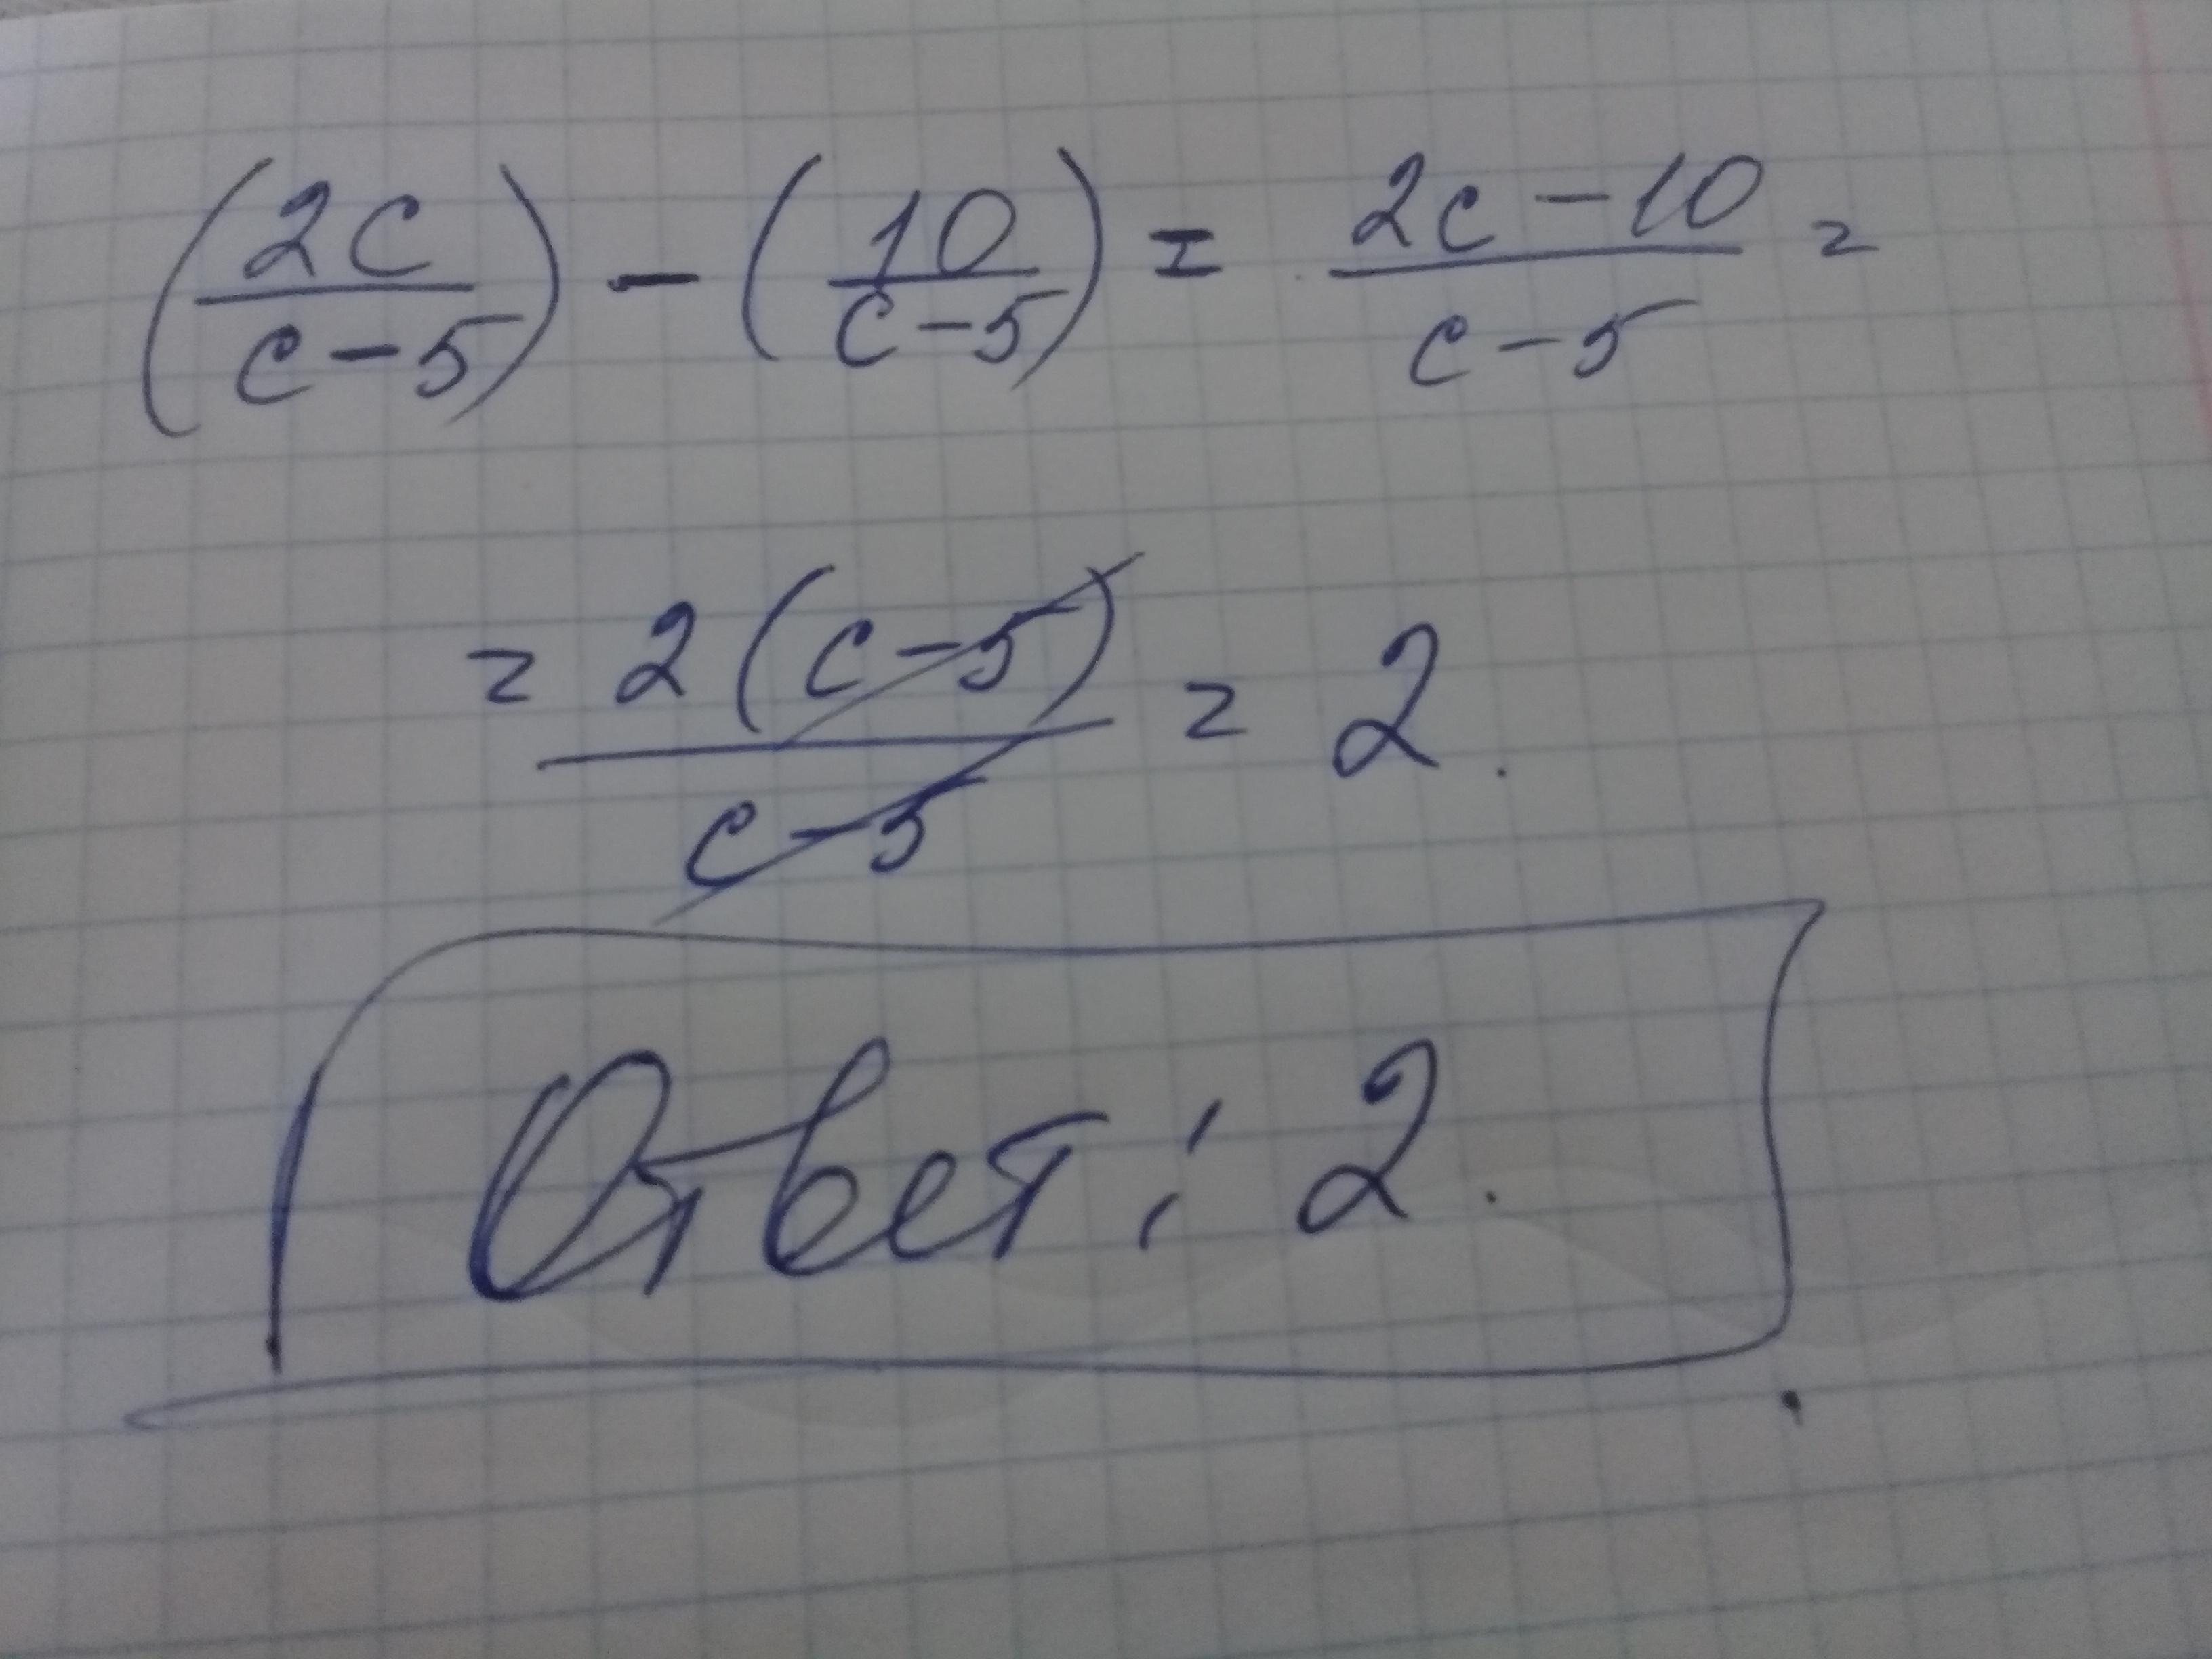 (2c/c-5) - (10/c-5) = 2c-10/c-5 =
= 2(c-5)/c-5 = 2.
Ответ: 2.